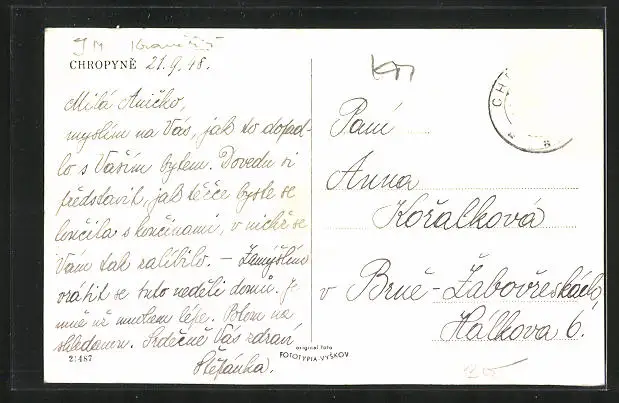 JM
CHROPYNĚ 21.9.48.
Milá Aničko,
myslím na Vás, jak to dopad-
lo s Vaším bytem. Dovedu si
představit, jak těžce byste se
loučila s končinami, v nichž se
Vám tak zalíbilo. — Zamýšlím
vrátit se tuto neděli domů. Je
mně už mnohem lépe. Pol na
shledanou. Srdečně Vás zdraví
Štěpánka.
2:487
original foto
FOTOTYPIA-VYŠKOV
CH
Paní
Anna
Kořalková
v Brně-Žabovřeskách,
Hálkova 6.